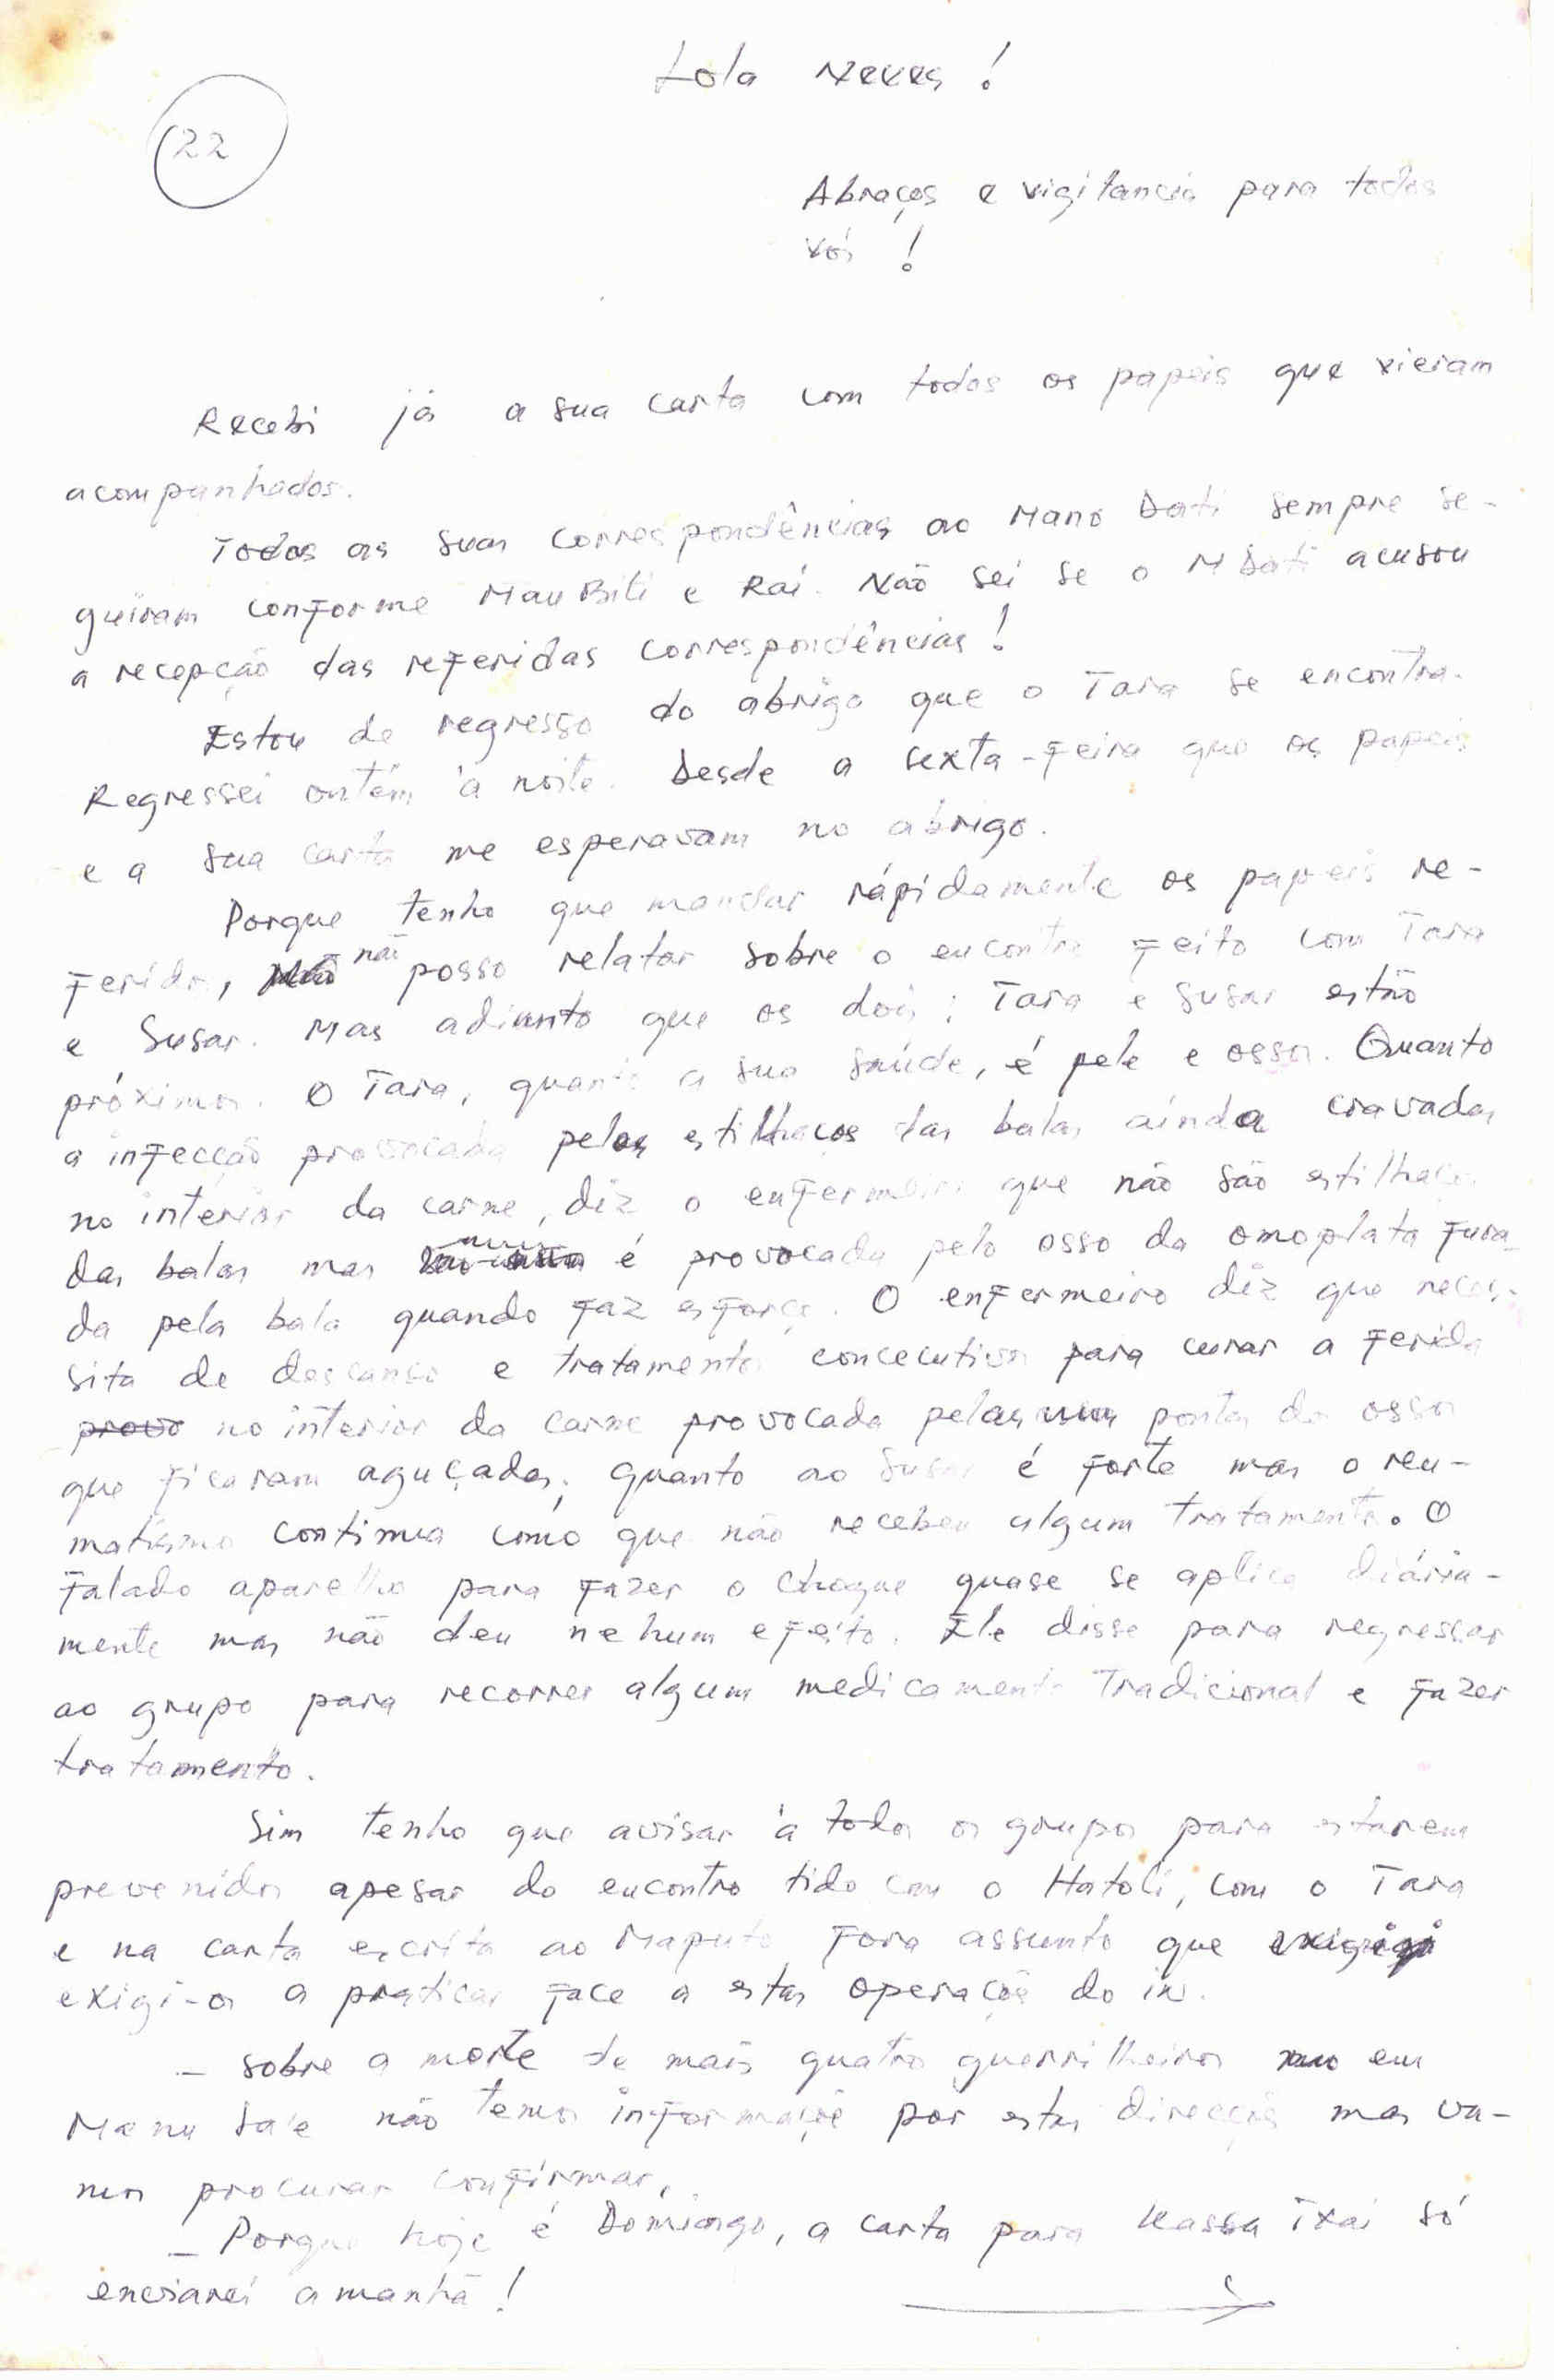 Lola Neves!
22
Abraços e vigilancia para todos
vós!
Recebi já a sua carta com todos os papeis que vieram
acompanhados.
Todas as suas correspondências ao Mano Dati sempre se-
guiram conforme Mau Biti e Rai. Não sei se o M Dati acusou
a recepção das referidas correspondências!
Estou de regresso do abrigo que o Tara se encontra.
Regressei ontém à noite. Desde a sexta-feira que os papeis
e a sua carta me esperavam no abrigo.
Porque tenho que mandar rápidamente os papeis re-
feridos, não posso relatar sobre o encontro feito com Tara
e Susar. Mas adianto que os dois; Tara e Susar estão
próximos. O Tara, quanto a sua saúde, é pele e ossos. Quanto
a infecção provocada pelos estilhaços das balas ainda cravadas
no interior da carne, diz o enfermeiro que não são estilhaços
das balas mas é provocada pelo osso da omoplata fura-
da pela bala quando faz esforço. O enfermeiro diz que neces-
sita de descanso e tratamentos concecutivos para curar a ferida
provo no interior da carne provocada pelas pontas do osso
que ficaram aguçadas; quanto ao Susar é forte mas o reu-
matismo continua como que não recebeu algum tratamento. O
falado aparelho para fazer o choque quase se aplica diária-
mente mas não deu nehum efeito. Ele disse para regressar
ao grupo para recorrer algum medicamento Tradicional e fazer
tratamento.
Sim tenho que avisar à todos os grupos para estarem
prevenidos apesar do encontro tido com o Hatoli, com o Tara
e na carta escrita ao Maputo fora assunto que
exigi-os a praticar face a estas operações do in.
- sobre a morte de mais quatro guerrilheiros em
Manu Sa'e não temos informações por estas direcções mas va-
mos procurar confirmar.
- Porque hoje é Domingo, a carta para Kassa Txai só
enviarei amanhã!